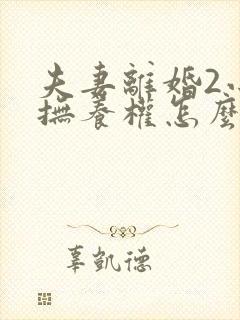 夫妻離婚2
撫養權怎麼
辜凱德